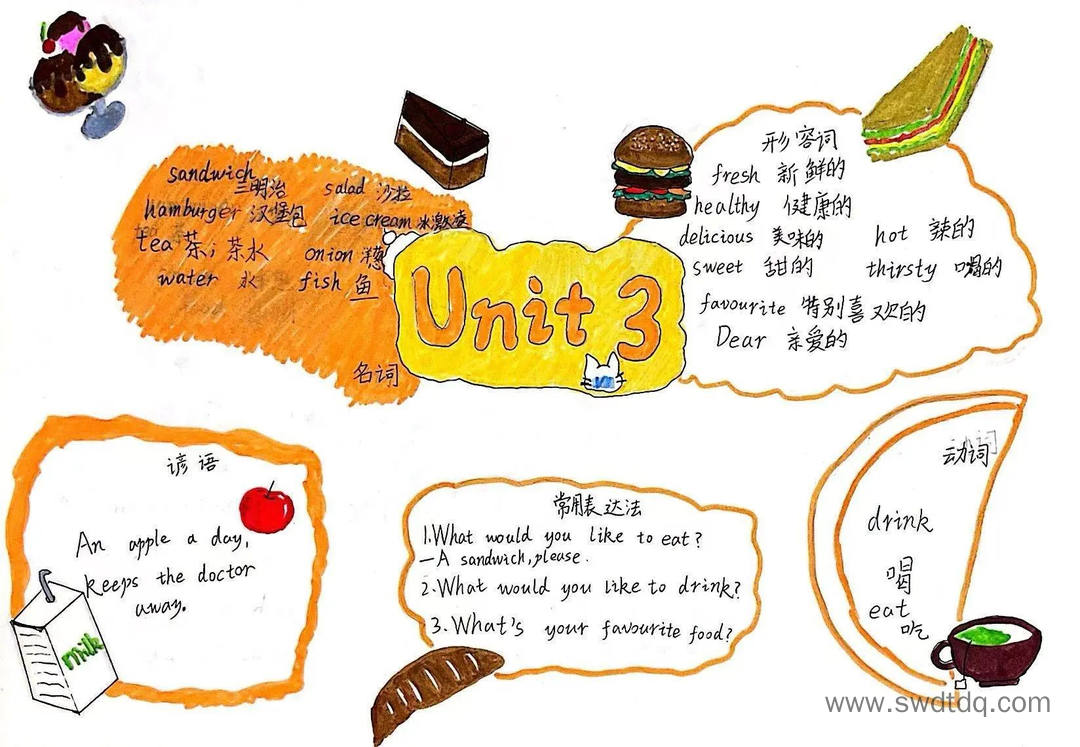 sandwich
三明治
salad 沙拉
hamburger 汉堡包
ice cream 冰激凌
tea 茶；茶水
onion 洋葱
water 水
fish 鱼
名词
Unit 3
形容词
fresh 新鲜的
healthy 健康的
delicious 美味的
hot 辣的
sweet 甜的
thirsty 喝的
favourite 特别喜欢的
Dear 亲爱的
谚语
An apple a day,
keeps the doctor
away.
milk
常用表达法
1.What would you like to eat?
—A sandwich,please.
2.What would you like to drink?
3.What's your favourite food?
动词
drink
喝
eat
吃
www.swdtdq.com